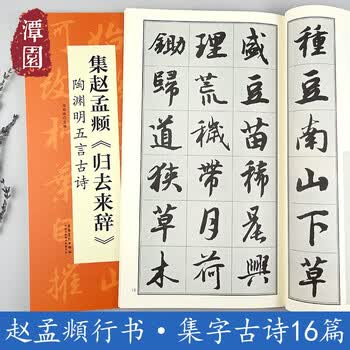 潭園
集赵孟頫《归去来辞》
陶渊明五言古诗
種豆南山下草
盛豆苗稀晨興
理荒穢帶月荷
鋤歸道狹草木
赵孟頫行书·集字古诗16篇